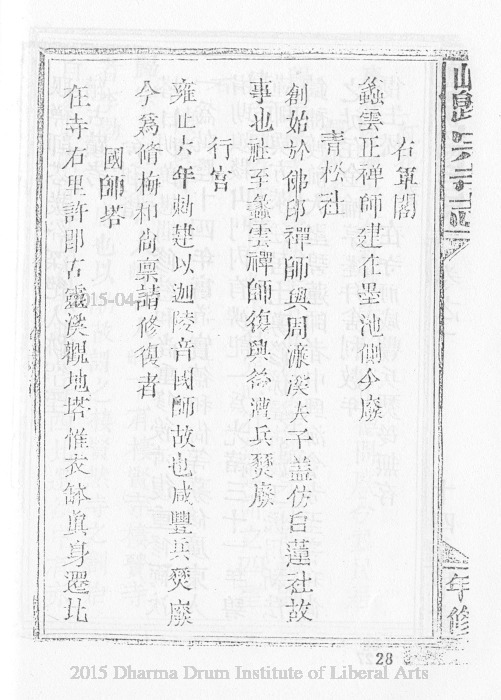 右軍閣
蠡雲正禪師建在墨池側今廢
青松社
創始於佛印禪師與周濂溪夫子蓋仿白蓮社故
事也社至蠡雲禪師復興爺遭兵燹廢
行宮
雍正六年勅建以迦陵音國師故也咸豐兵燹廢
今為脩梅和尚稟請修復者
國師塔
在寺右里許即古靈溪觀地塔惟衣缽眞身還北
年修
28
2015-04
2015 Dharma Drum Institute of Liberal Arts